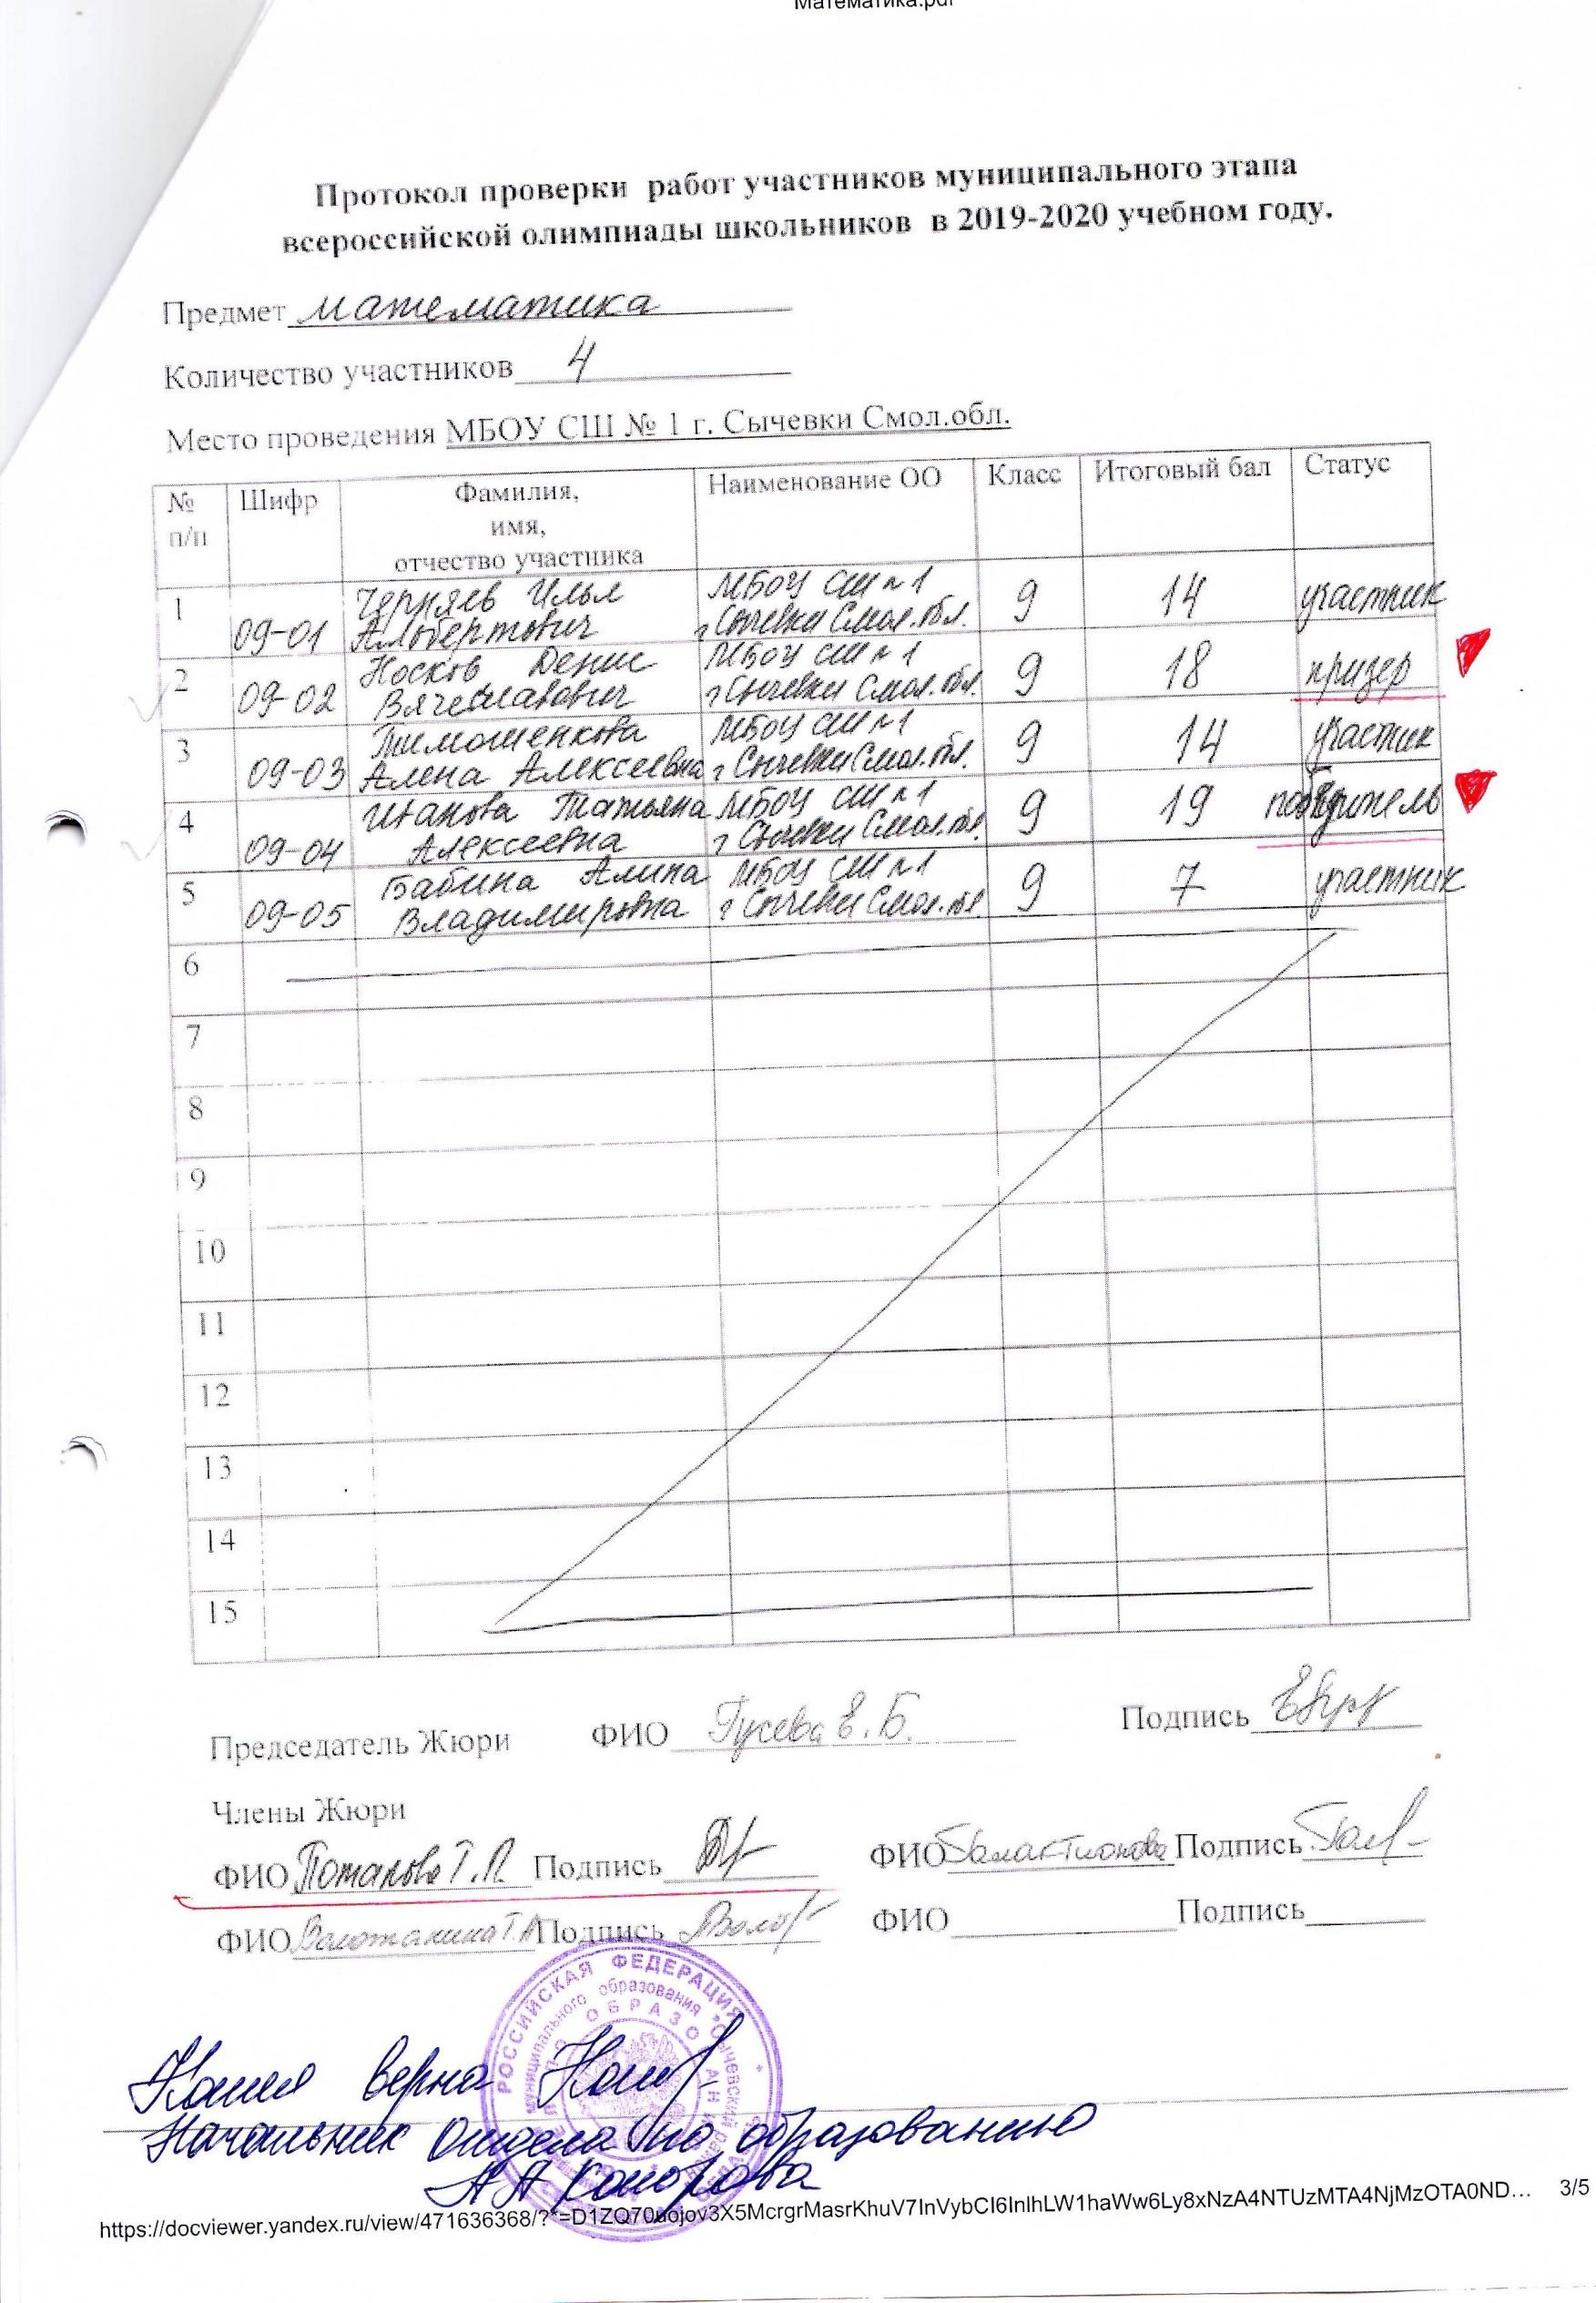 Математика.pdf
Протокол проверки работ участников муниципального этапа
всероссийской олимпиады школьников в 2019-2020 учебном году.
Предмет математика
Количество участников 4
Место проведения МБОУ СШ № 1 г. Сычевки Смол.обл.
№ п/п Шифр Фамилия, имя, отчество участника Наименование ОО Класс Итоговый бал Статус
1 09-01 Черняев Илья Альбертович МБОУ СШ №1 г Сычевки Смол.обл. 9 14 участник
2 09-02 Носков Денис Вячеславович МБОУ СШ №1 г Сычевки Смол.обл. 9 18 призер
3 09-03 Тимошенкова Алена Алексеевна МБОУ СШ №1 г Сычевки Смол.обл. 9 14 участик
4 09-04 Иванова Татьяна Алексеевна МБОУ СШ №1 г Сычевки Смол.обл. 9 19 победитель
5 09-05 Бабина Алина Владимировна МБОУ СШ №1 г Сычевки Смол.обл 9 7 участник
6
7
8
9
10
11
12
13
14
15
Председатель Жюри ФИО Гусева Е.Б. Подпись
Члены Жюри
ФИО Потапова Т.П. Подпись ФИО Галактионова Подпись
ФИО Подпись ФИО Подпись
РОССИЙСКАЯ ФЕДЕРАЦИЯ
муниципального образования "Сычевский
Копия верна
Начальник отдела по образованию
https://docviewer.yandex.ru/view/471636368/?*=D1ZQ70 3X5McrgrMasrKhuV7InVybCI6InlhLW1haWw6Ly8xNzA4NTUzMTA4NjMzOTA0ND... 3/5